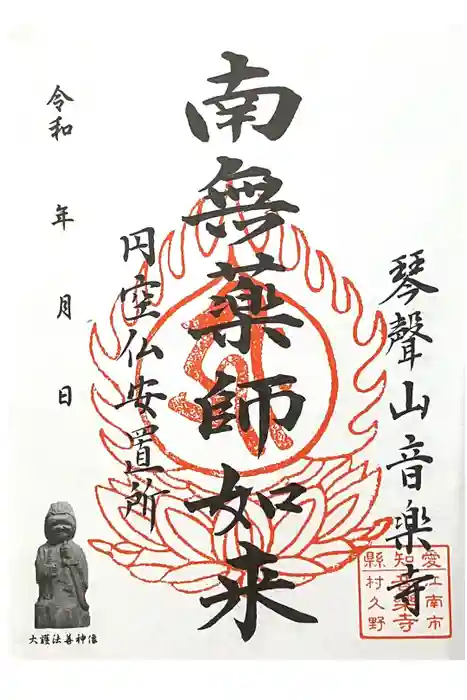 琴聲山音楽寺
南無薬師如来
円空仏安置所
令和 年 月 日
大護法善神像
愛江南市
知音楽寺
縣村久野